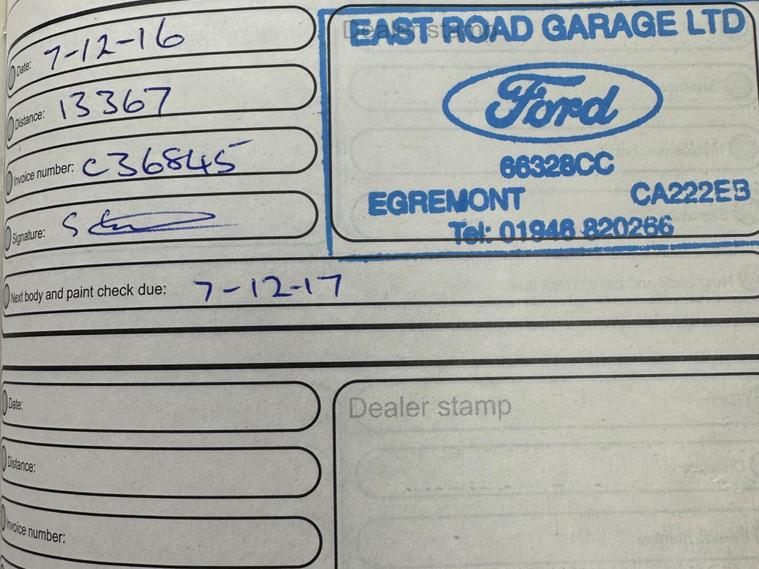 Date: 7-12-16
Distance: 13367
Invoice number: C36845
Signature:
Dealer stamp
EAST ROAD GARAGE LTD
Ford
66328CC
EGREMONT CA222EB
Tel: 01946 820266
Next body and paint check due: 7-12-17
Date:
Distance:
Invoice number:
Dealer stamp